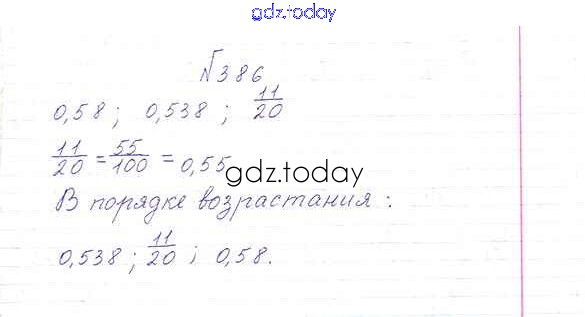 gdz.today
№386
0,58; 0,538; 11/20
11/20 = 55/100 = 0,55
gdz.today
В порядке возрастания:
0,538; 11/20; 0,58.